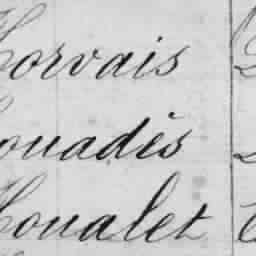 Horvais
ouadès
Houalet